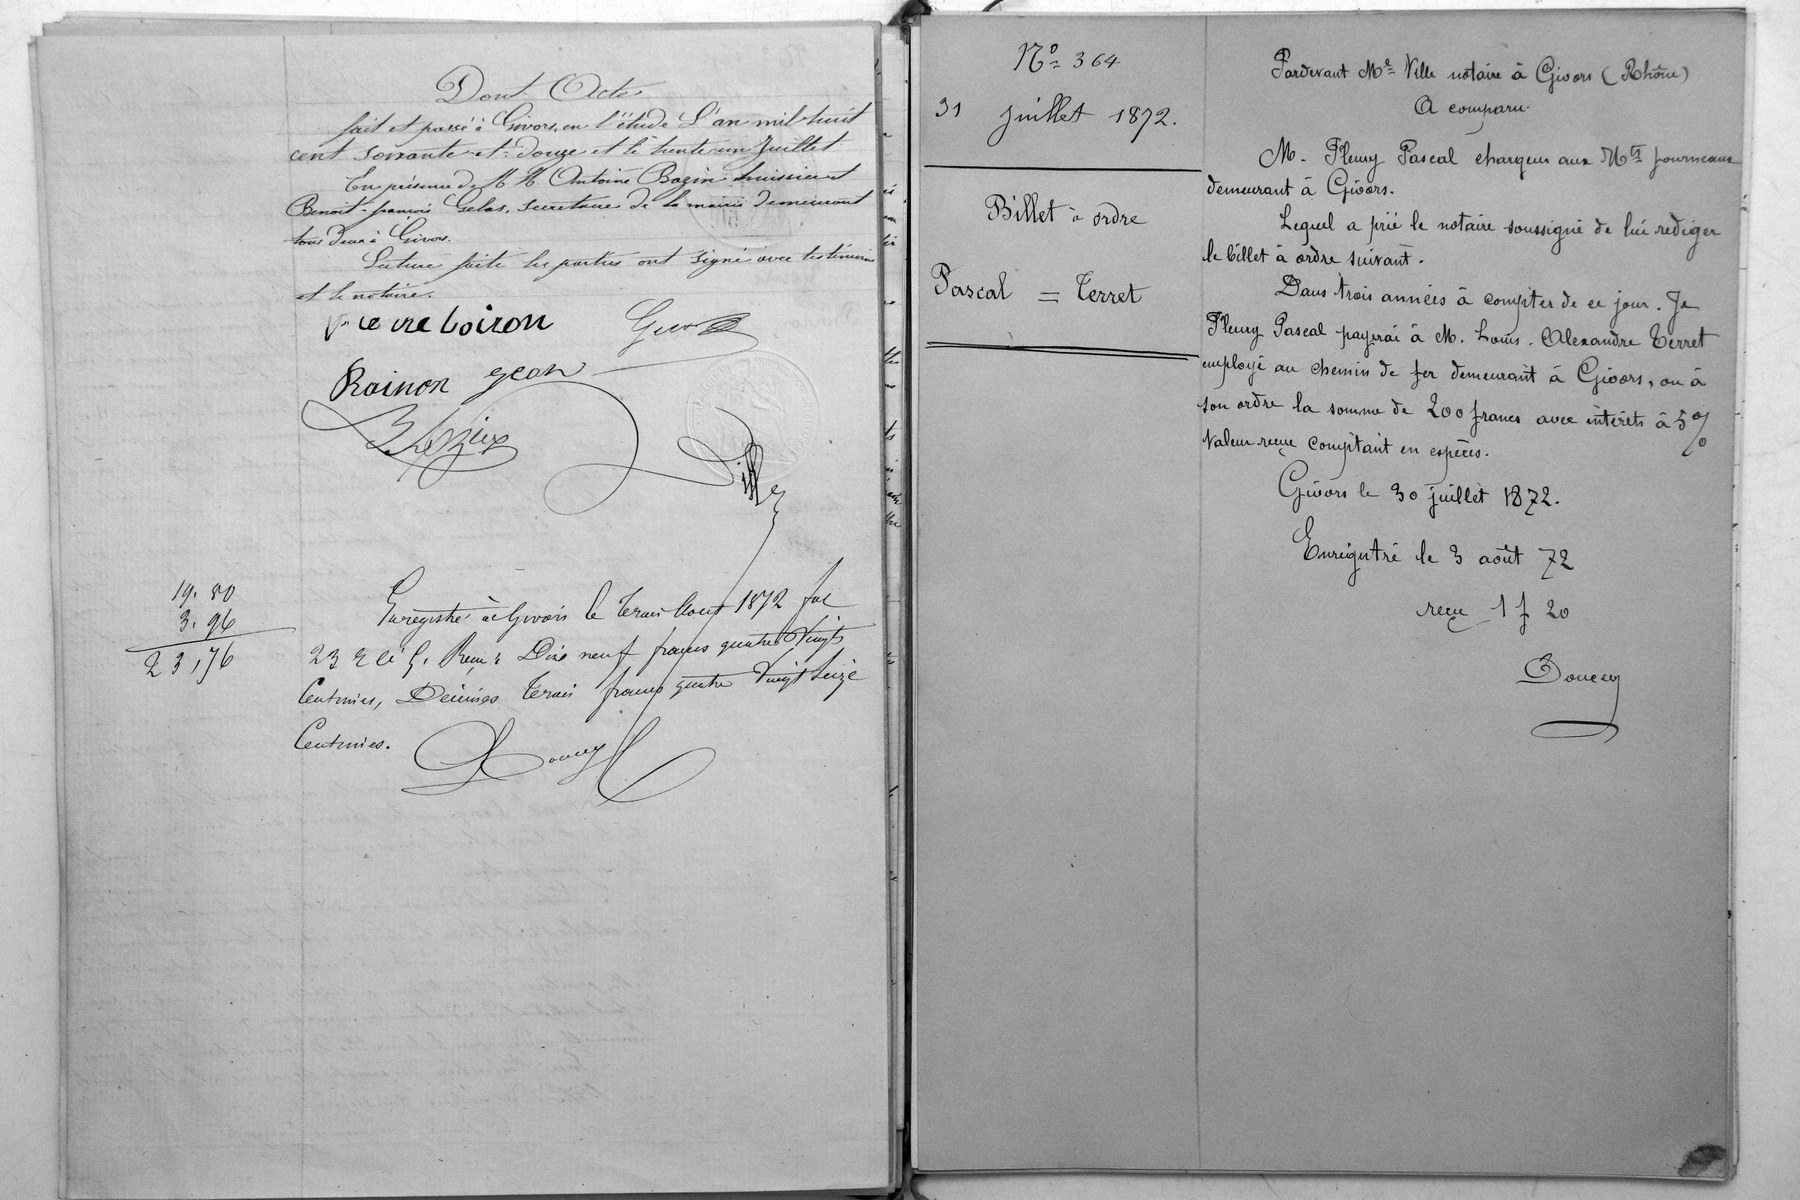 Dont Acte
fait et passé à Givors, en l'étude L'an mil huit
cent soixante-et-douze et le trente-un Juillet
En présence de M M Antoine Bazin huissier et
Benoit-françois Gelas, secretaire de la mairie demeurant
tous deux à Givors.
Lecture faite les parties ont signé avec les témoins
et le notaire.
Pierre Loiron
Rainon jean
Ville
19. 80
3. 96
23,76
Enregistré à Givors le trois Aout 1872 fol
23 Reçu: Dix neuf francs quatre Vingts
Centimes, Décimes trois francs quatre Vingt Seize
Centimes.
Doucey
No 364
31 juillet 1872.
Billet à ordre
Pascal = Terret
Pardevant Me Ville notaire à Givors (Rhône)
A comparu.
M. Fleury Pascal chargeur aux Hts fourneaux
demeurant à Givors.
Lequel a prié le notaire soussigné de lui rediger
le billet à ordre suivant.
Dans trois années à compter de ce jour. Je
Fleury Pascal payerai à M. Louis. Alexandre Terret
employé au chemin de fer demeurant à Givors, ou à
son ordre la somme de 200 francs avec intérêts à 5%
Valeur reçue comptant en espèces.
Givors le 30 juillet 1872.
Enregistré le 3 août 72
reçu 1 f 20
Doucey